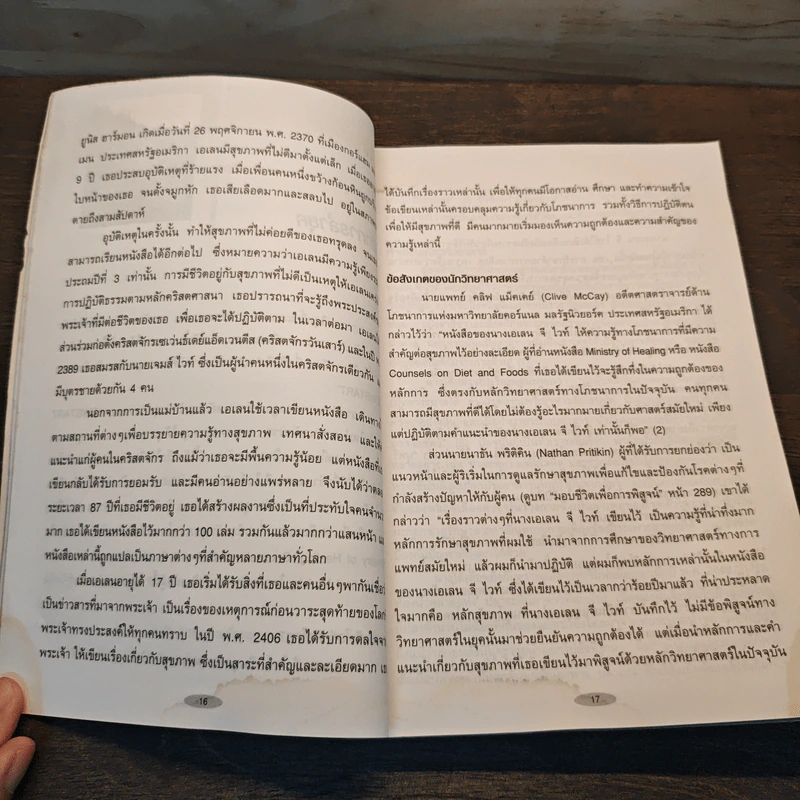 ยูนิส ฮาร์มอน เกิดเมื่อวันที่ 26 พฤศจิกายน พ.ศ. 2370 ที่เมืองกอร์แฮม
เมน ประเทศสหรัฐอเมริกา เอเลนมีสุขภาพที่ไม่ดีมาตั้งแต่เล็ก เมื่อเธออายุ
9 ปี เธอประสบอุบัติเหตุที่ร้ายแรง เมื่อเพื่อนคนหนึ่งขว้างก้อนหินถูก
ใบหน้าของเธอ จนดั้งจมูกหัก เธอเสียเลือดมากและสลบไป อยู่ในสภาพ
ตายถึงสามสัปดาห์
อุบัติเหตุในครั้งนั้น ทำให้สุขภาพที่ไม่ค่อยดีของเธอทรุดลง จน
สามารถเรียนหนังสือได้อีกต่อไป ซึ่งหมายความว่าเอเลนมีความรู้เพียง
ประถมปีที่ 3 เท่านั้น การมีชีวิตอยู่กับสุขภาพที่ไม่ดีเป็นเหตุให้เอเลน
การปฏิบัติธรรมตามหลักคริสตศาสนา เธอปรารถนาที่จะรู้ถึงพระประสงค์
พระเจ้าที่มีต่อชีวิตของเธอ เพื่อเธอจะได้ปฏิบัติตาม ในเวลาต่อมา เอเลน
ส่วนร่วมก่อตั้งคริสตจักรเซเว่นธ์เดย์แอ๊ดเวนตีส (คริสตจักรวันเสาร์) และใน
2389 เธอสมรสกับนายเจมส์ ไวท์ ซึ่งเป็นผู้นำคนหนึ่งในคริสตจักรเดียวกัน
มีบุตรชายด้วยกัน 4 คน
นอกจากการเป็นแม่บ้านแล้ว เอเลนใช้เวลาเขียนหนังสือ เดินทาง
ตามสถานที่ต่างๆเพื่อบรรยายความรู้ทางสุขภาพ เทศนาสั่งสอน และให้
แนะนำแก่ผู้คนในคริสตจักร ถึงแม้ว่าเธอจะมีพื้นความรู้น้อย แต่หนังสือที่
เขียนกลับได้รับการยอมรับ และมีคนอ่านอย่างแพร่หลาย จึงนับได้ว่าตลอด
ระยะเวลา 87 ปีที่เธอมีชีวิตอยู่ เธอได้สร้างผลงานซึ่งเป็นที่ประทับใจคนจำนวน
มาก เธอได้เขียนหนังสือไว้มากกว่า 100 เล่ม รวมกันแล้วมากกว่าแสนหน้า
หนังสือเหล่านี้ถูกแปลเป็นภาษาต่างๆที่สำคัญหลายภาษาทั่วโลก
เมื่อเอเลนอายุได้ 17 ปี เธอเริ่มได้รับสิ่งที่เธอและคนอื่นๆพากันเชื่อ
เป็นข่าวสารที่มาจากพระเจ้า เป็นเรื่องของเหตุการณ์ก่อนวาระสุดท้ายของโลก
พระเจ้าทรงประสงค์ให้ทุกคนทราบ ในปี พ.ศ. 2406 เธอได้รับการดลใจจาก
พระเจ้า ให้เขียนเรื่องเกี่ยวกับสุขภาพ ซึ่งเป็นสาระที่สำคัญและละเอียดมาก
16
ได้บันทึกเรื่องราวเหล่านั้น เพื่อให้ทุกคนมีโอกาสอ่าน ศึกษา และทำความเข้าใจ
ข้อเขียนเหล่านั้นครอบคลุมความรู้เกี่ยวกับโภชนาการ รวมทั้งวิธีการปฏิบัติตน
เพื่อให้มีสุขภาพที่ดี มีคนมากมายเริ่มมองเห็นความถูกต้องและความสำคัญของ
ความรู้เหล่านี้
ข้อสังเกตของนักวิทยาศาสตร์
นายแพทย์ คลิฟ แม็คเคย์ (Clive McCay) อดีตศาสตราจารย์ด้าน
โภชนาการแห่งมหาวิทยาลัยคอร์แนล มลรัฐนิวยอร์ค ประเทศสหรัฐอเมริกา ได้
กล่าวไว้ว่า "หนังสือของนางเอเลน จี ไวท์ ให้ความรู้ทางโภชนาการที่มีความ
สำคัญต่อสุขภาพไว้อย่างละเอียด ผู้ที่อ่านหนังสือ Ministry of Healing หรือ หนังสือ
Counsels on Diet and Foods ที่เธอได้เขียนไว้จะรู้สึกทึ่งในความถูกต้องของ
หลักการ ซึ่งตรงกับหลักวิทยาศาสตร์ทางโภชนาการในปัจจุบัน คนทุกคน
สามารถมีสุขภาพที่ดีได้โดยไม่ต้องรู้อะไรมากมายเกี่ยวกับศาสตร์สมัยใหม่ เพียง
แต่ปฏิบัติตามคำแนะนำของนางเอเลน จี ไวท์ เท่านั้นก็พอ" (2)
ส่วนนายนาธัน พริติคิน (Nathan Pritikin) ผู้ที่ได้รับการยกย่องว่า เป็น
แนวหน้าและผู้ริเริ่มในการดูแลรักษาสุขภาพเพื่อแก้ไขและป้องกันโรคต่างๆที่
กำลังสร้างปัญหาให้กับผู้คน (ดูบท "มอบชีวิตเพื่อการพิสูจน์" หน้า 289) เขาได้
กล่าวว่า "เรื่องราวต่างๆที่นางเอเลน จี ไวท์ เขียนไว้ เป็นความรู้ที่น่าทึ่งมาก
หลักการรักษาสุขภาพที่ผมใช้ นำมาจากการศึกษาของวิทยาศาสตร์ทางการ
แพทย์สมัยใหม่ แล้วผมก็นำมาปฏิบัติ แต่ผมก็พบหลักการเหล่านั้นในหนังสือ
ของนางเอเลน จี ไวท์ ซึ่งได้เขียนไว้เป็นเวลากว่าร้อยปีมาแล้ว ที่น่าประหลาด
ใจมากคือ หลักสุขภาพ ที่นางเอเลน จี ไวท์ บันทึกไว้ ไม่มีข้อพิสูจน์ทาง
วิทยาศาสตร์ในยุคนั้นมาช่วยยืนยันความถูกต้องได้ แต่เมื่อนำหลักการและคำ
แนะนำเกี่ยวกับสุขภาพที่เธอเขียนไว้มาพิสูจน์ด้วยหลักวิทยาศาสตร์ในปัจจุบัน
17